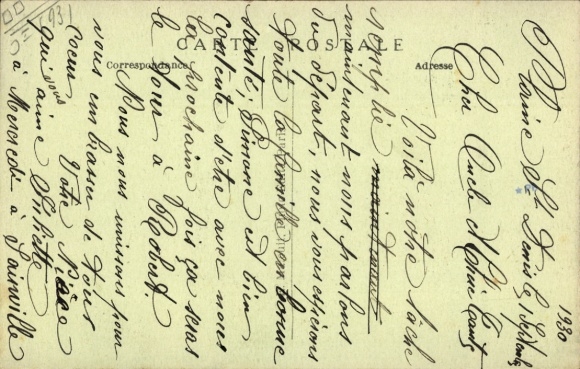 (1931)
CARTE POSTALE
Correspondance
Adresse
1930
Mairie St Denis le Septembre
Cher Oncle et Chère Tante
Voilà notre tâche
remplie maintenant
maintenant nous parlons
du départ, nous vous désirons
toute la famille en bonne
santé, Simone est bien
contente d'être avec nous
la prochaine fois ça sera
le tour à Robert.
Nous nous unissons pour
vous embrasser de tout
coeur Votre Nièce
qui vous aime Juliette
à Mercredi à Sainville